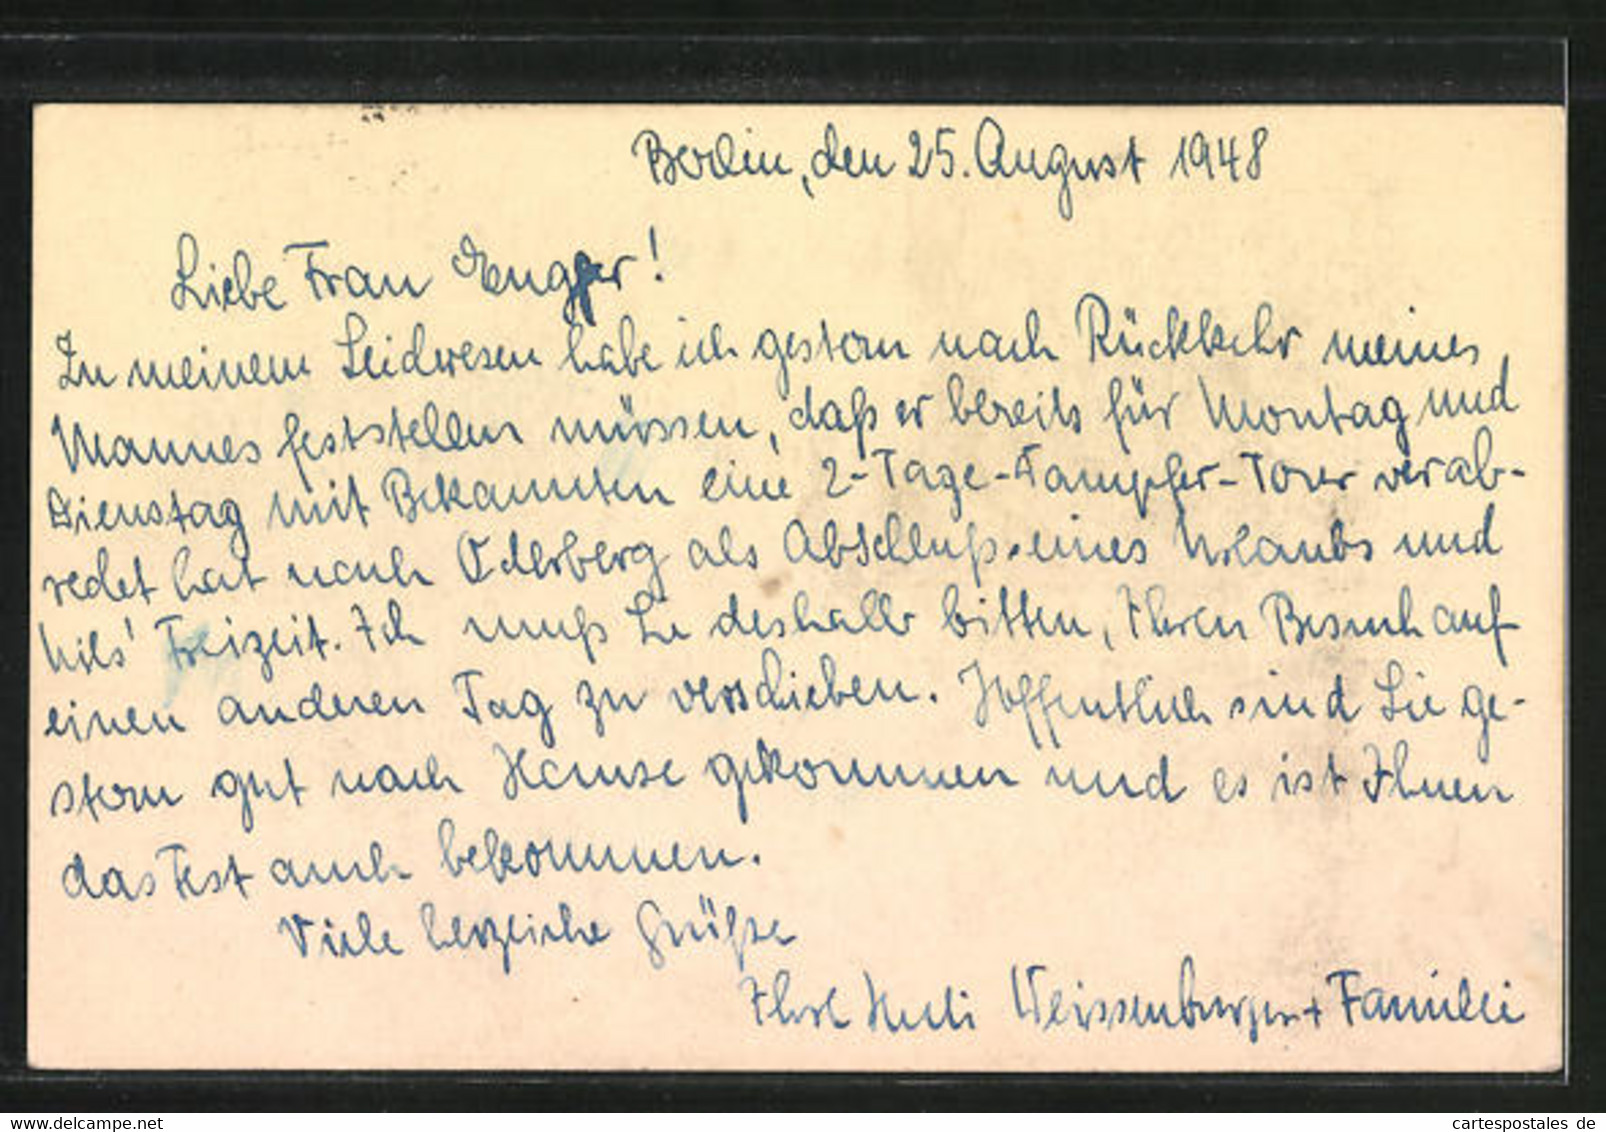 Berlin, den 25. August 1948
Liebe Frau
Zu meinem Leidwesen habe ich gestern nach Rückkehr meines
Mannes feststellen müssen, daß er bereits für Montag und
Dienstag mit Bekannten eine 2-Tage-Dampfer-Tour verab-
redet hat nach Oderberg als Abschluß eines Urlaubs und
Nils' Freizeit. Ich muß Sie deshalb bitten, Ihren Besuch auf
einen anderen Tag zu verschieben. Hoffentlich sind Sie ge-
stern gut nach Hause gekommen und es ist Ihnen
das Fest auch bekommen.
Viele herzliche Grüße
Ihre Weissenburger + Familie
cartespostales de